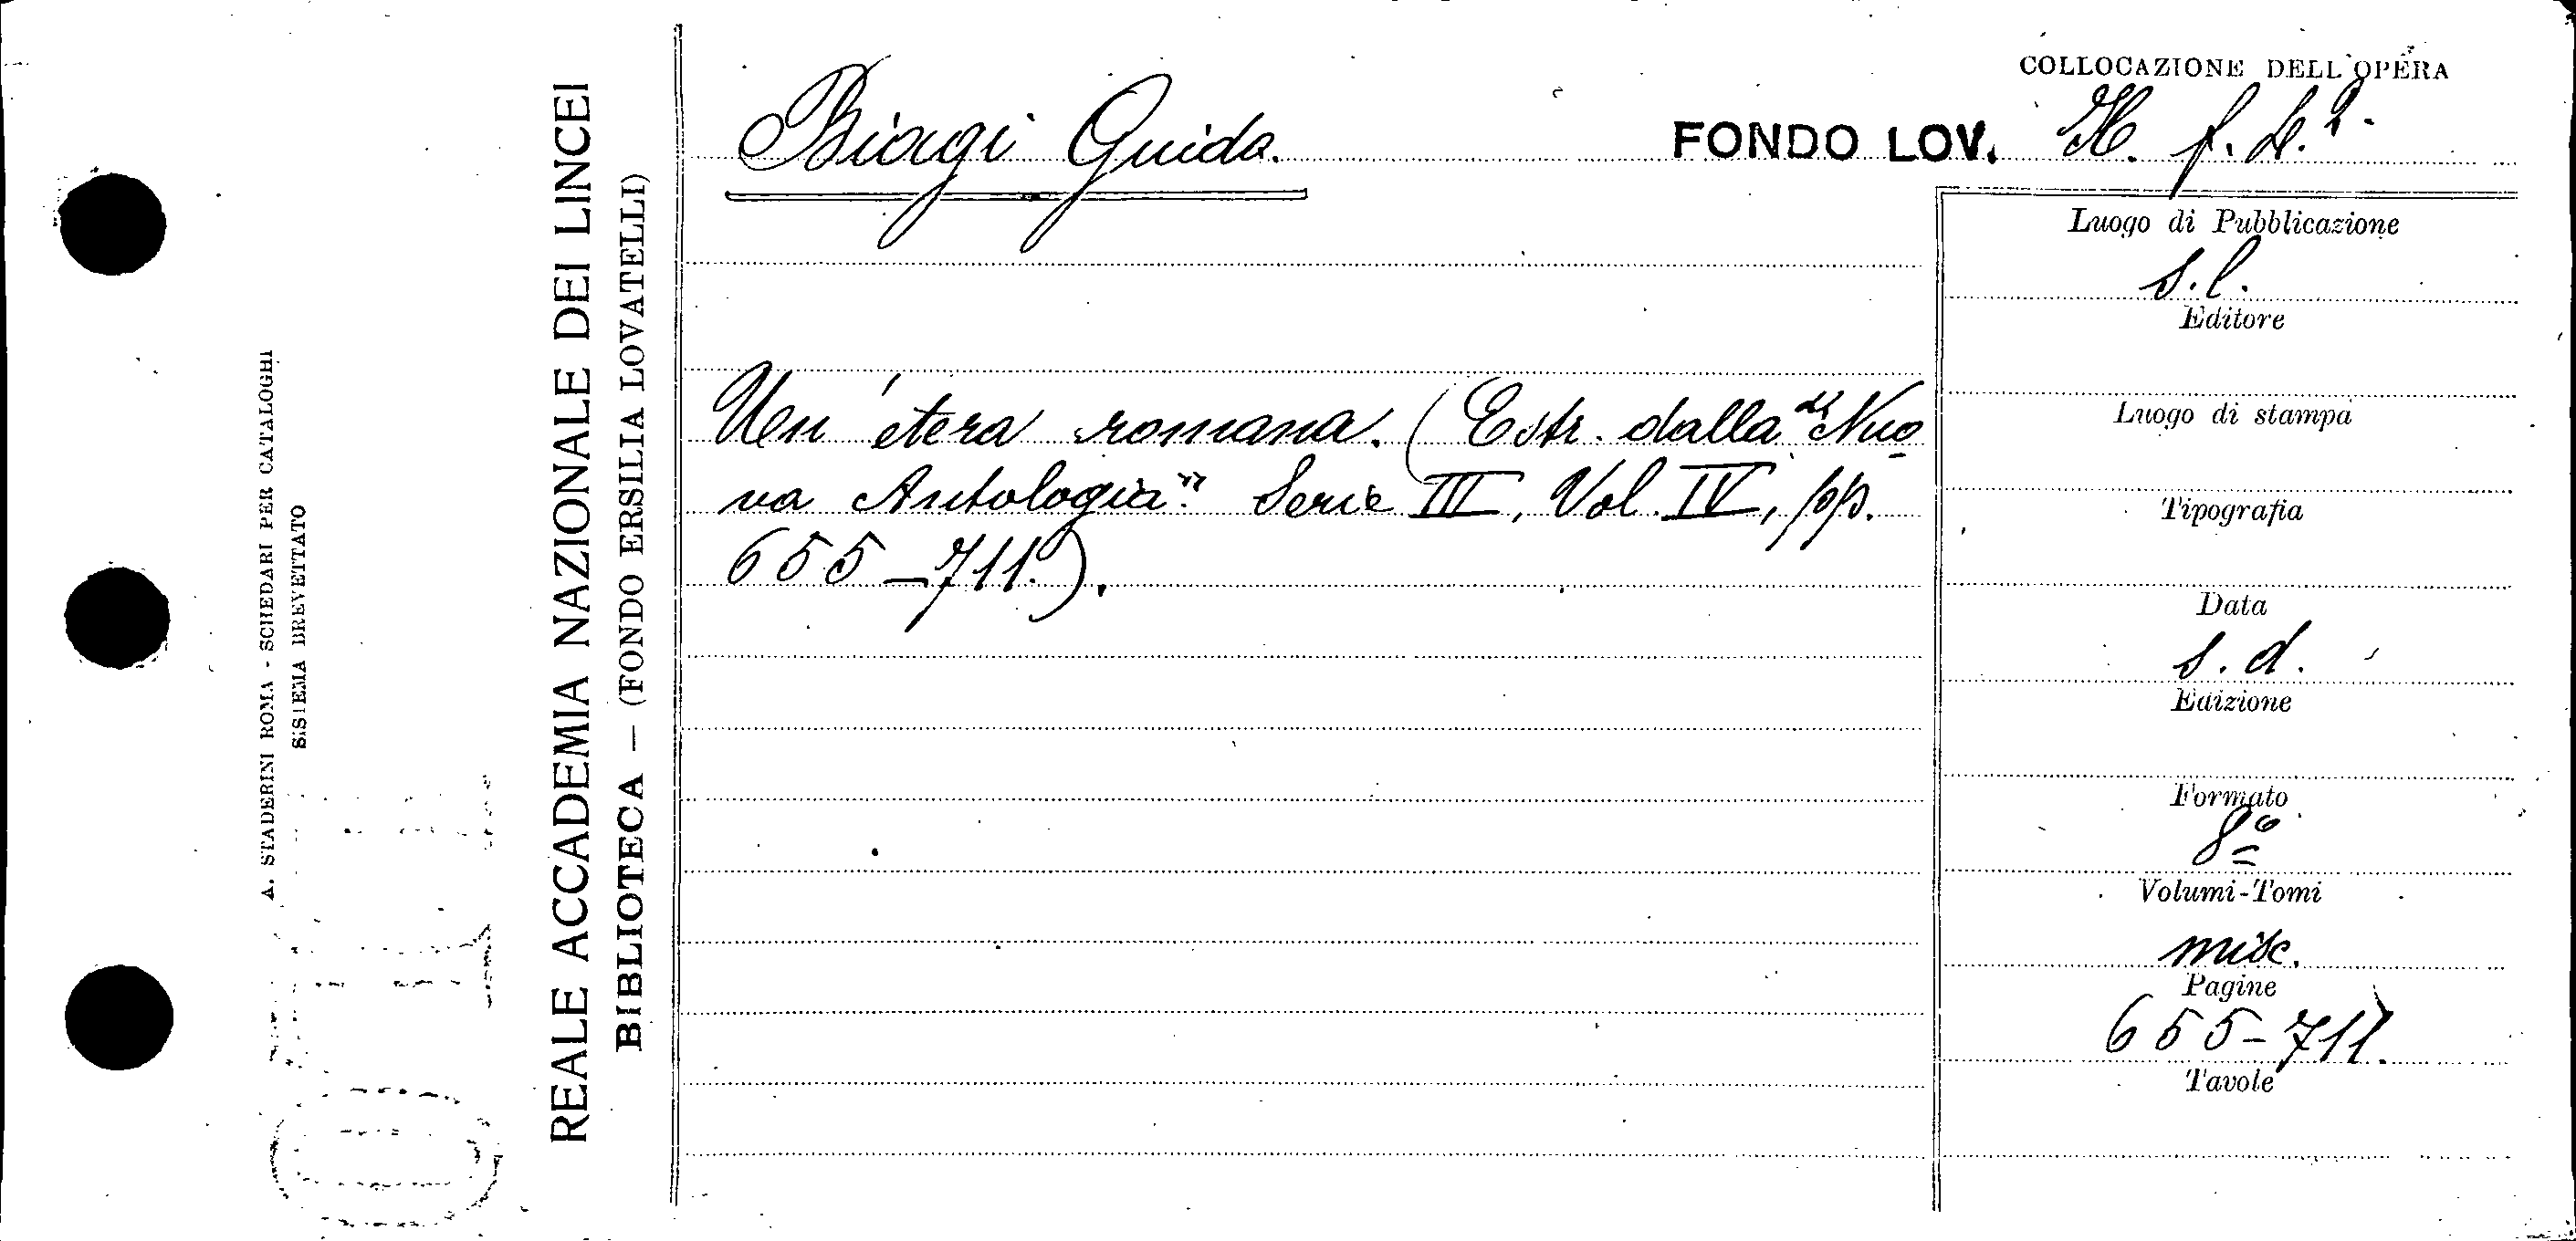 COLLOCAZIONE DELL'OPERA
Biagi Guido.
FONDO LOV. H. f. L.
Un' étera romana. (Estr. dalla "Nuo
va Antologia" Serie III, Vol. IV, pp.
655-711.).
Luogo di Pubblicazione
s.l.
Editore
Luogo di stampa
Tipografia
Data
s. d.
Edizione
Formato
8º
Volumi-Tomi
misc.
Pagine
655-711.
Tavole
REALE ACCADEMIA NAZIONALE DEI LINCEI
BIBLIOTECA — (FONDO ERSILIA LOVATELLI)
A. STADERINI ROMA - SCHEDARI PER CATALOGHI
SISTEMA BREVETTATO